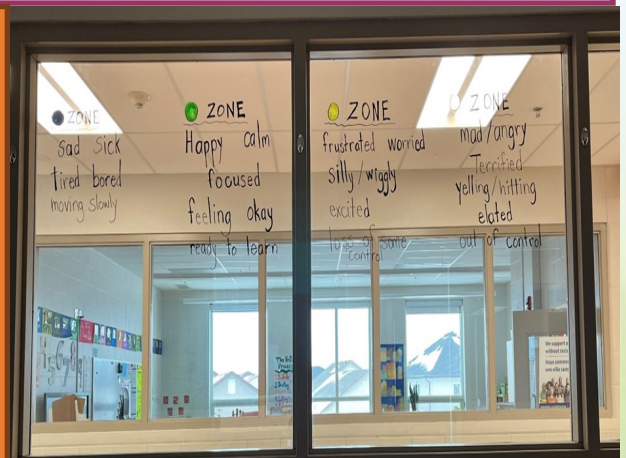 ZONE
Sad Sick
tired bored
moving slowly
ZONE
Happy calm
focused
feeling okay
ready to learn
ZONE
frustrated worried
silly/wiggly
excited
loss of some
control
ZONE
mad/angry
Terrified
yelling/hitting
elated
out of control
We support a
without racis